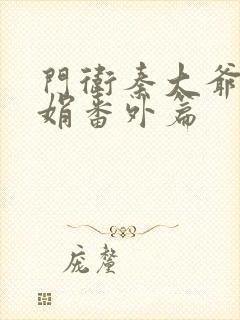 門衛秦大爺
娟番外篇
庞釐